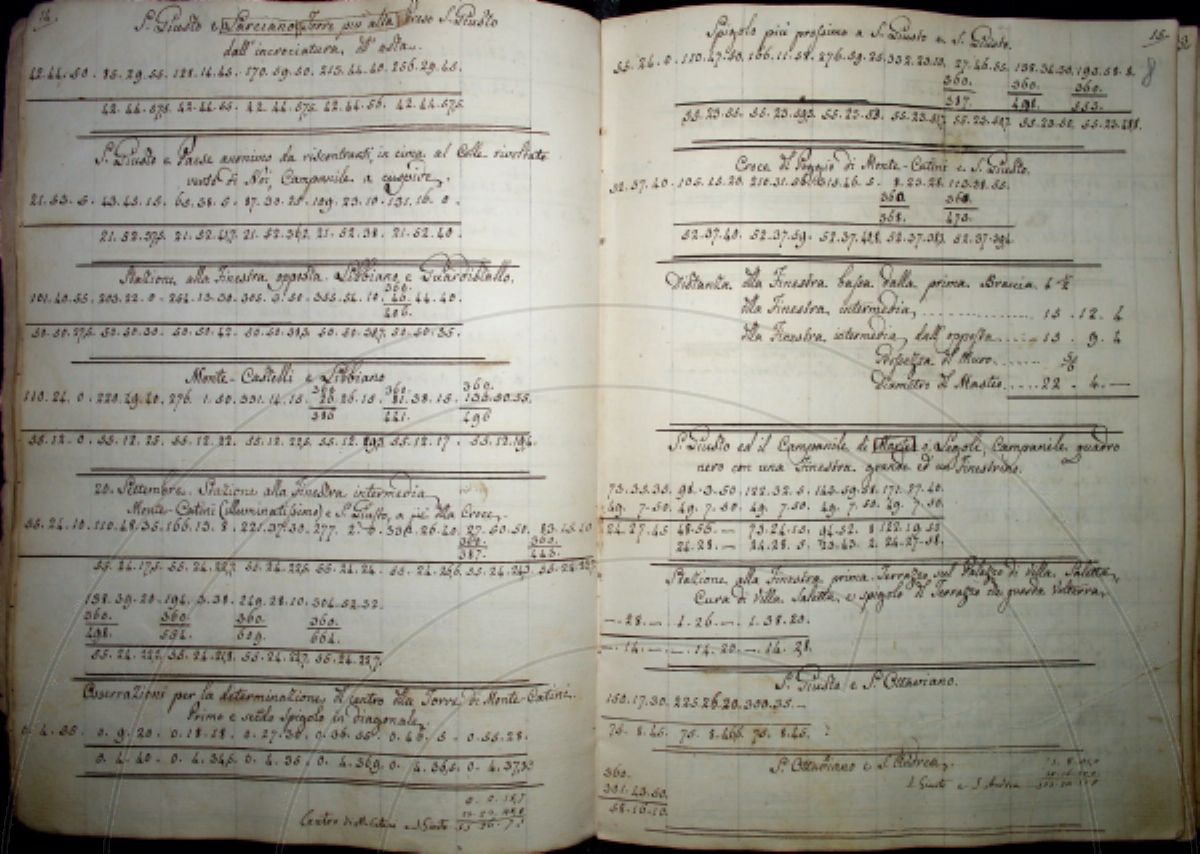 14.
S. Giusto e Parciano, Torre più alta verso S. Giusto
dall'incrociatura d'asta.
42.44.50. 85.29.55. 128.14.45. 170.59.50. 213.44.40. 256.29.45.
42.44.575. 42.44.55. 42.44.575. 42.44.56. 42.44.575.
S. Giusto e Paese anonimo da riscontrarsi, in cima al Colle rivoltato
verso di Noi, Campanile a cuspide.
21.53.5. 43.45.15. 65.38.5. 87.30.25. 109.23.10. 131.16.0.
21.52.375. 21.52.417. 21.52.362. 21.52.38. 21.52.40.
Stazione alla Finestra opposta. Libbiano, e Guardistallo.
360.
101.40.55. 203.22.0. 254.13.30. 305.3.50. 355.54.10. 46.44.40.
406.
50.50.275. 50.50.30. 50.50.42. 50.50.383. 50.50.387. 50.50.35.
Monte-Castelli e Libbiano
360. 360. 360.
110.24.0. 220.49.40. 276.1.50. 331.14.15. 26.26.15. 81.38.15. 136.50.55.
386 441. 496
55.12.0. 55.12.25. 55.12.22. 55.12.225. 55.12.293. 55.12.17. 55.12.194.
20. Settembre. Stazione alla Finestra intermedia
Monte-Catini (illuminatissimo) e S. Giusto, a piè della Croce.
55.24.10. 110.48.35. 166.13.8. 221.37.30. 277.2.0. 332.26.40. 27.50.50. 83.15.10
360. 360.
387. 443.
55.24.175. 55.24.227. 55.24.225. 55.24.24. 55.24.266. 55.24.243. 55.24.227.
138.39.20. 194.3.38. 249.28.10. 304.52.32.
360. 360. 360. 360.
498. 554. 609. 664.
55.24.222. 55.24.218. 55.24.227. 55.24.227.
Osservazioni per la determinazione del centro della Torre di Monte-Catini.
Primo e secdo Spigolo in diagonale.
0.4.35. 0.9.20. 0.18.18. 0.27.30. 0.36.55. 0.46.5. 0.55.28.
0.4.40. 0.4.345. 0.4.35. 0.4.369. 0.4.365. 0.4.373
Centro di M. Catini e S. Giusto
15.
8
Spigolo più prossimo a S. Giusto e S. Giusto.
55.24.0. 110.47.50. 166.11.58. 276.59.25. 332.23.10. 27.46.55. 138.34.30. 193.58.8.
360. 360. 360.
387. 498. 553.
55.23.55. 55.23.593. 55.23.53. 55.23.517. 55.23.507. 55.23.50. 55.23.488.
Croce del Poggio di Monte-Catini e S. Giusto.
52.37.40. 105.15.20. 210.31.58. 315.46.5. 8.23.28. 113.38.55.
360. 360.
368. 473.
52.37.40. 52.37.59. 52.37.408. 52.37.383. 52.37.394.
Distanza della Finestra bassa dalla prima Braccia 6 ½
della Finestra intermedia, . . . . . . 15 . 12 . 4
della Finestra intermedia, dall'opposta . . . . 13 . 9 . 4
Grossezza del Muro. . . . . 5/6
Diametro del Mastio. . . . . 22 . 4 . —
S. Giusto ed il Campanile di Marie o Legoli, Campanile quadro
nero con una Finestra grande ed un Finestrino.
73.35.35. 98.3.50. 122.32.5. 143.59.58. 171.27.40.
49.7.50. 49.7.50. 49.7.50. 49.7.50. 49.7.50.
24.27.45 48.56.— 73.24.15. 94.52.8 122.19.50
24.28.— 24.28.5. 23.43.2. 24.27.58.
Stazione alla Finestra prima. Terrazzo sul Palazzo di Villa Saletta,
Cura di Villa Saletta, e spigolo del Terrazzo che guarda Volterra.
—.28.— 1.26.— 1.38.20.
—.14.— —.14.20.— 14.28
S. Giusto e S. Ottaviano.
150.17.30. 225.26.20. 300.35.—
75.8.45. 75.8.466. 75.8.45.
S. Ottaviano e S. Andrea.
360.
301.43.50.
58.16.10.
S. Giusto e S. Andrea